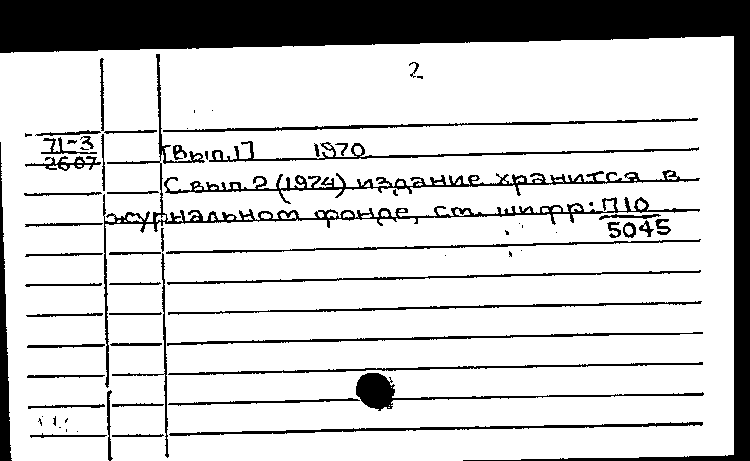 2
71-3
2607
[Вып.1] 1970
С вып. 2 (1974) издание хранится в
журнальном фонде, см. шифр: П10
5045